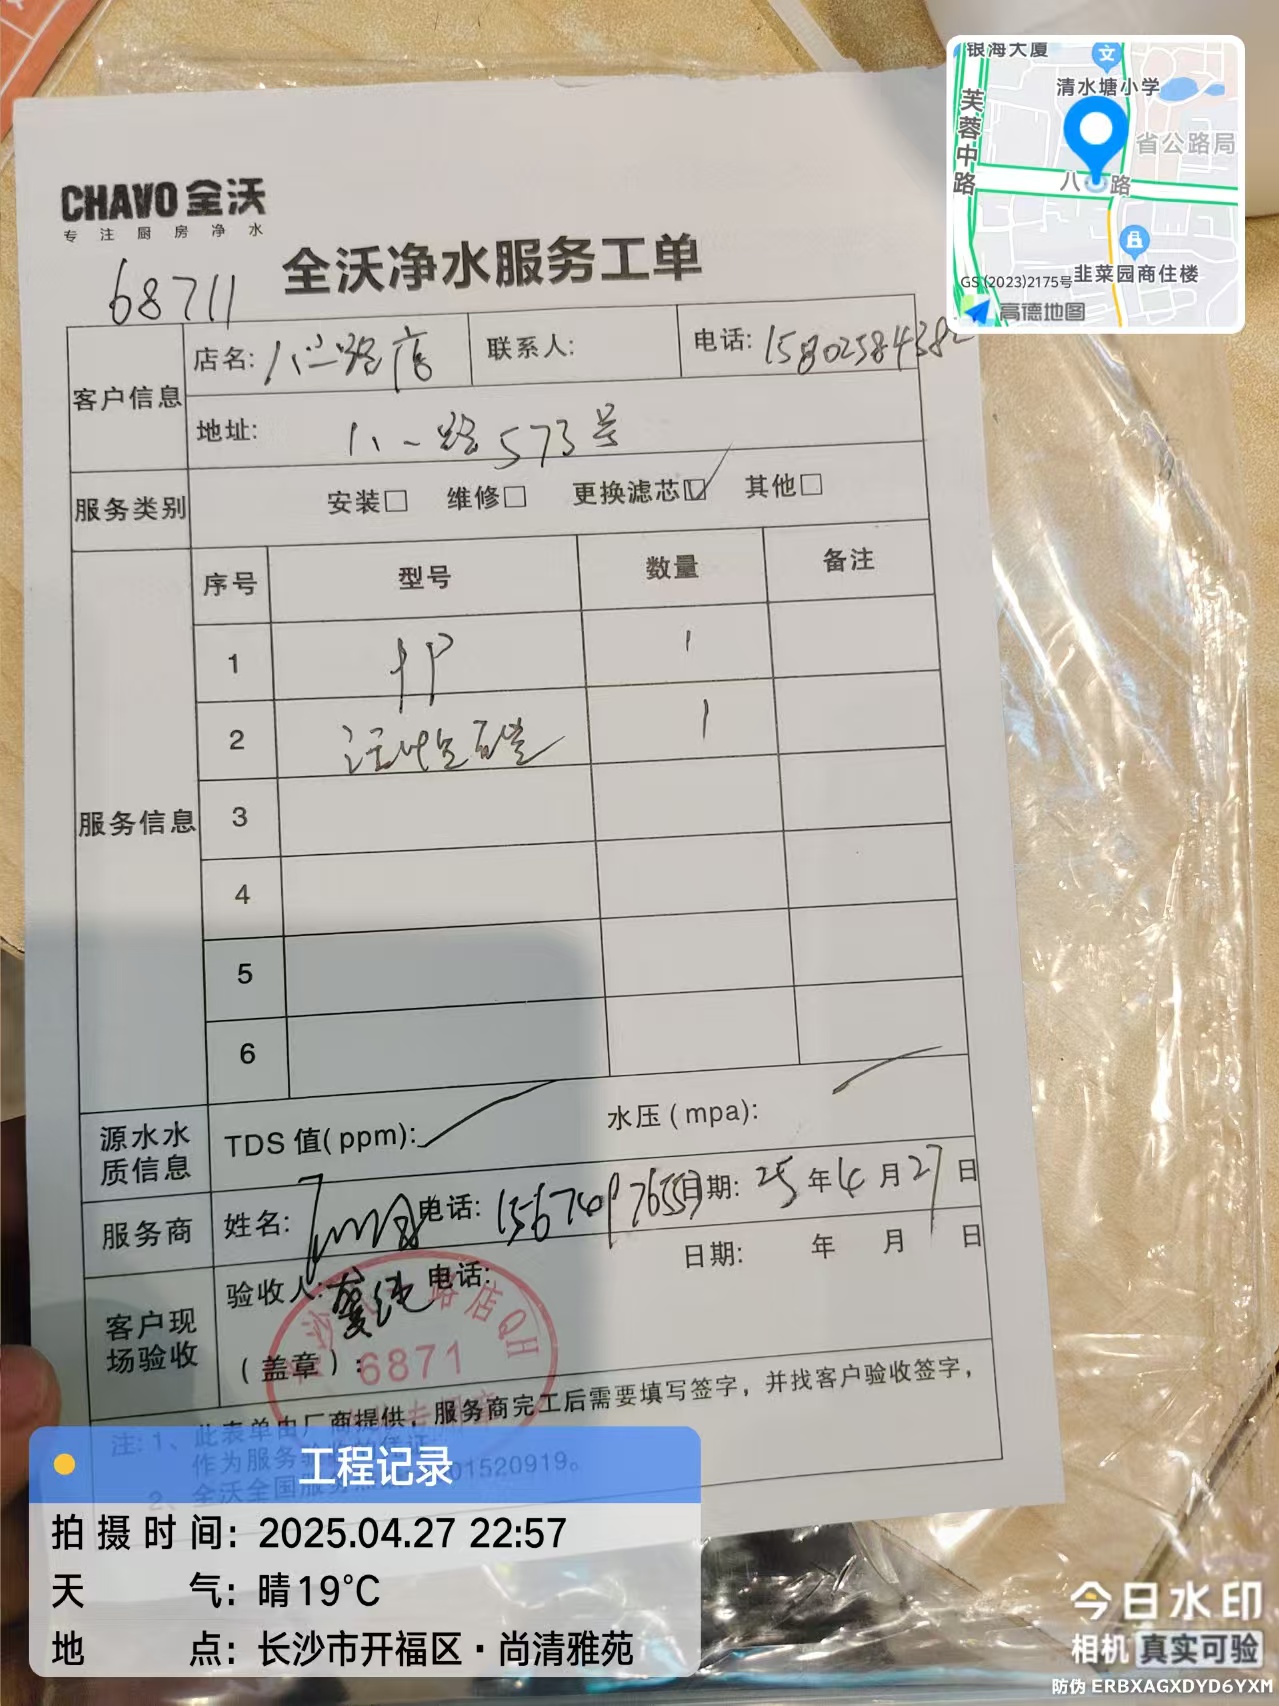 银海大厦
文
清水塘小学
芙蓉中路
省公路局
八 路
韭菜园商住楼
GS(2023)2175号
高德地图
CHAVO 全沃
专注厨房净水
68711
全沃净水服务工单
客户信息
店名: 八一路店 联系人: 电话:
地址: 八一路573号
服务类别 安装□ 维修□ 更换滤芯☑ 其他□
服务信息
序号 型号 数量 备注
1 PP 1
2 活性炭 1
3
4
5
6
源水水质信息 TDS 值(ppm): 水压(mpa):
服务商 姓名: 电话: 日期: 25年4月27日
客户现场验收
验收人: 电话: 日期: 年 月 日
(盖章):
路店QH
6871
注: 1、此表单由厂商提供,服务商完工后需要填写签字,并找客户验收签字,
作为服务验收的凭证
2、全沃全国服务 01520919。
工程记录
拍摄时间: 2025.04.27 22:57
天 气: 晴 19°C
地 点: 长沙市开福区·尚清雅苑
今日水印
相机 真实可验
防伪 ERBXAGXDYD6YXM